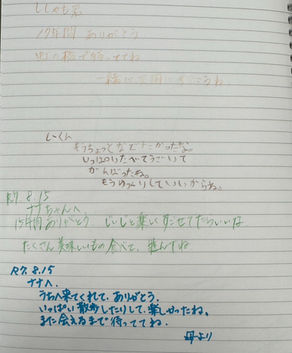 ししゃも君
17年間 ありがとう
虹の橋で待っててね
一緒に
しーくん
もうちょっとなでたかったな。
いっぱいたべてうごいて
がんばったね。
もうゆっくりしていいからね。
R7 8.15
ナナちゃんへ
15年間ありがとう じいじと楽しくすごせてたらいいな
たくさん美味しいもの食べて、遊んでね
R7.8.15
ナナへ
うちへ来てくれて、ありがとう。
いっぱい散歩したりして、楽しかったね。
また会えるまで待っててね。
母より